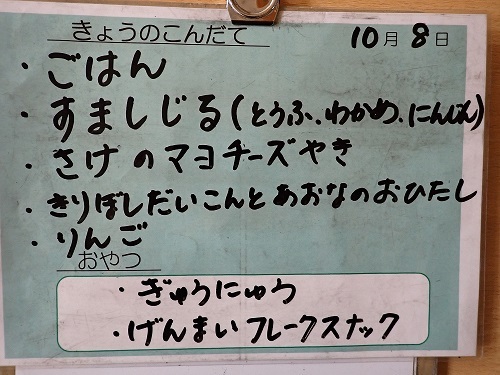 きょうのこんだて 10月8日
・ごはん
・すましじる(とうふ、わかめ、にんじん)
・さけのマヨチーズやき
・きりぼしだいこんとあおなのおひたし
・りんご
おやつ
・ぎゅうにゅう
・げんまいフレークスナック